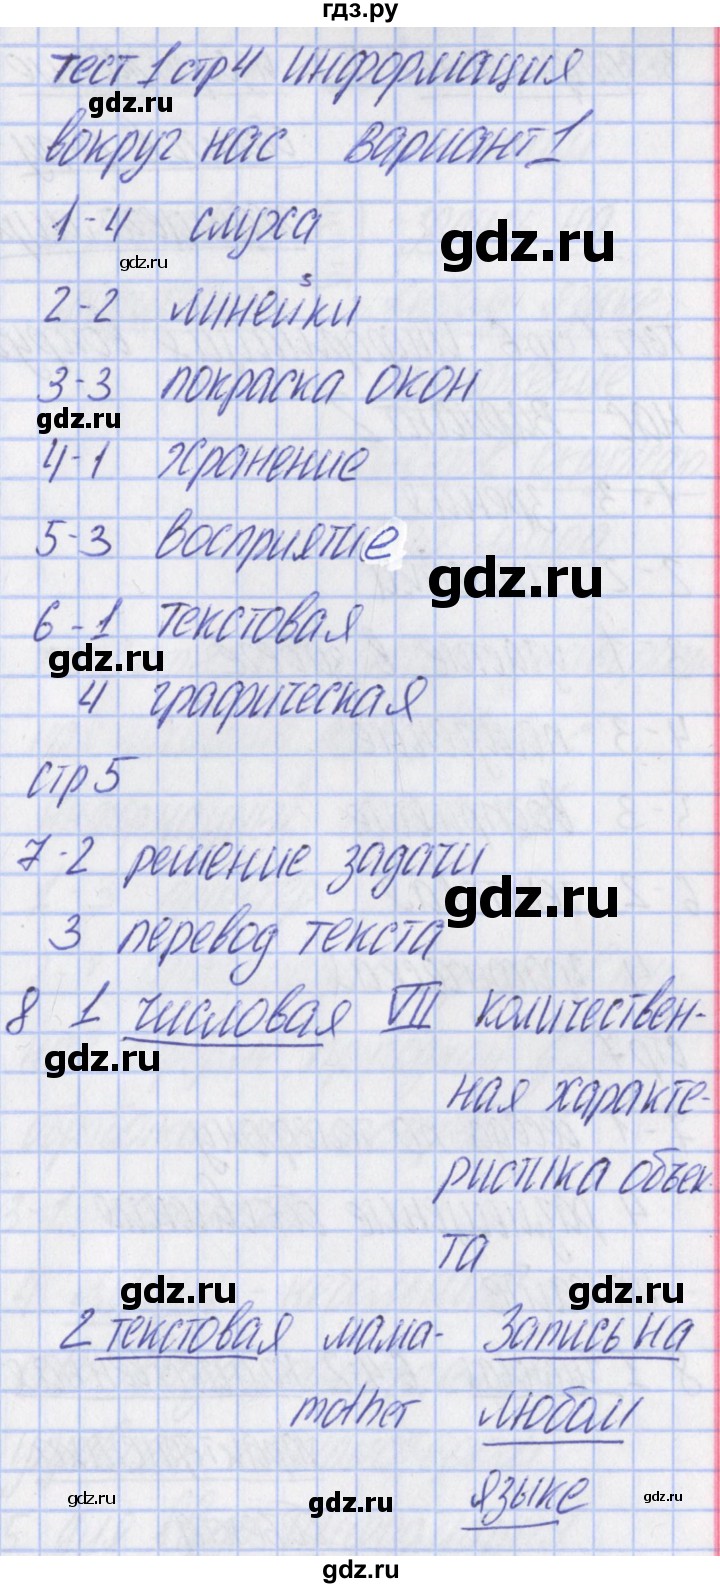 гдз.ру
тест 1 стр 4 информация
gdz.ru
вокруг нас вариант 1
1-4 слуха
gdz.ru
gdz.ru
2-2 линейки
3-3 покраска окон
gdz.ru
4-1 хранение
5-3 восприятие
gdz.ru
6-1 текстовая
gdz.ru
4 графическая
стр 5
7-2 решение задачи
gdz.ru
3 перевод текста
8 1 числовая VII количествен-
gdz.ru
ная характе-
ристика объек-
та
gdz.ru gdz.ru
2 текстовая мама- Запись на
mother любом
языке
gdz.ru gdz.ru gdz.ru
gdz.ru